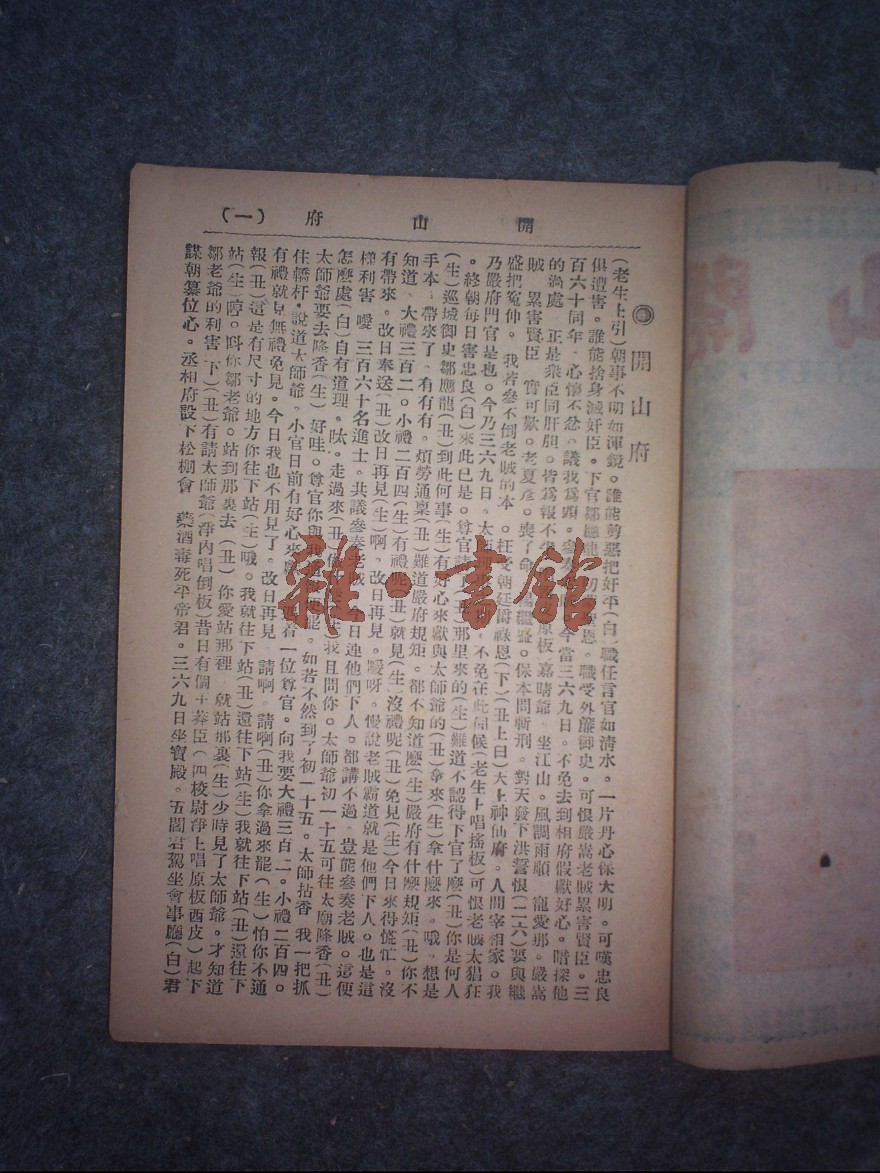 開山府（一）
◎開山府
（老生上引）朝事不明如渾鏡。誰能剪惡把奸平（白）職任言官如清水。一片丹心保大明。可嘆忠良
俱遭害。誰能捨身滅奸臣。下官鄒應龍 職受外簾御史。可恨嚴嵩老賊累害賢臣。三
百六十同年。心懷不忿。議我爲頭。參奏 今當三六九日。不免去到相府假獻好心。暗探他
的淌處 正是衆臣同肝胆。皆爲報不 原板 嘉靖爺 坐江山。風調雨順 寵愛那。嚴嵩
賊 累害賢臣 實可歎。老夏彥。喪了命 楊繼盛。保本問斬刑。對天發下洪誓恨（二六）要與繼
盛把冤伸。我若參不倒老賊的本。枉受朝廷爵祿恩（下）（丑上白）天上神仙府。人間宰相家。我
乃嚴府門官是也。今乃三六九日。太 不免在此伺候（老生上唱搖板）可恨老賊太猖狂
。終朝每日害忠良（白）來此已是。尊官請（丑）那里來的（生）難道不認得下官了麽（丑）你是何人
（生）巡城御史鄒應龍（丑）到此何事（生）有好心來獻與太師爺的（丑）拿來（生）拿什麽來。哦。想是
手本。帶來了。有有有。煩勞通稟（丑）難道嚴府規矩。都不知道麽（生）嚴府有什麽規矩（丑）你不
知道。大禮三百二。小禮二百四（生）有禮呢（丑）就見（生）沒禮呢（丑）免見（生）今日來得慌忙。沒
有帶來。改日奉送（丑）改日再見（生）啊。改日再見。噯呀。慢說老賊霸道就是他們下人。也是這
樣利害 噯 三百六十名進士。共議參奏老賊 今日連他們下人。都講不過。豈能參奏老賊。這便
怎麽處（白）自有道理。呔。走過來（丑） 我且問你。太師爺初一十五可往太廟降香（丑）
太師爺要去降香（生）好哇。尊官你與我通稟便罷。如若不然到了初一十五。太師拈香 我一把抓
住轎杆。說道太師爺。小官日前有好心來獻 遇着一位尊官。向我要大禮三百二。小禮二百四。
有禮就見無禮免見。今日我也不用見了。改日再見 請啊。請啊（丑）你拿過來罷（生）怕你不通
報（丑）這是有尺寸的地方你往下站（生）哦。我就往下站（丑）還往下站（生）我就往下站（丑）還往下
站（生）哼。呌你鄒老爺。站到那裏去（丑）你愛站那裡 就站那裏（生）少時見了太師爺。才知道
鄒老爺的利害（下）（丑）有請太師爺（淨內唱倒板）昔日有個王莽臣（四校尉淨上唱原板西皮）起下
謀朝纂位心。丞相府設下松棚會 藥酒毒死平帝君。三六九日坐寶殿。五閣君駕坐會事廳（白）君
雜·書館